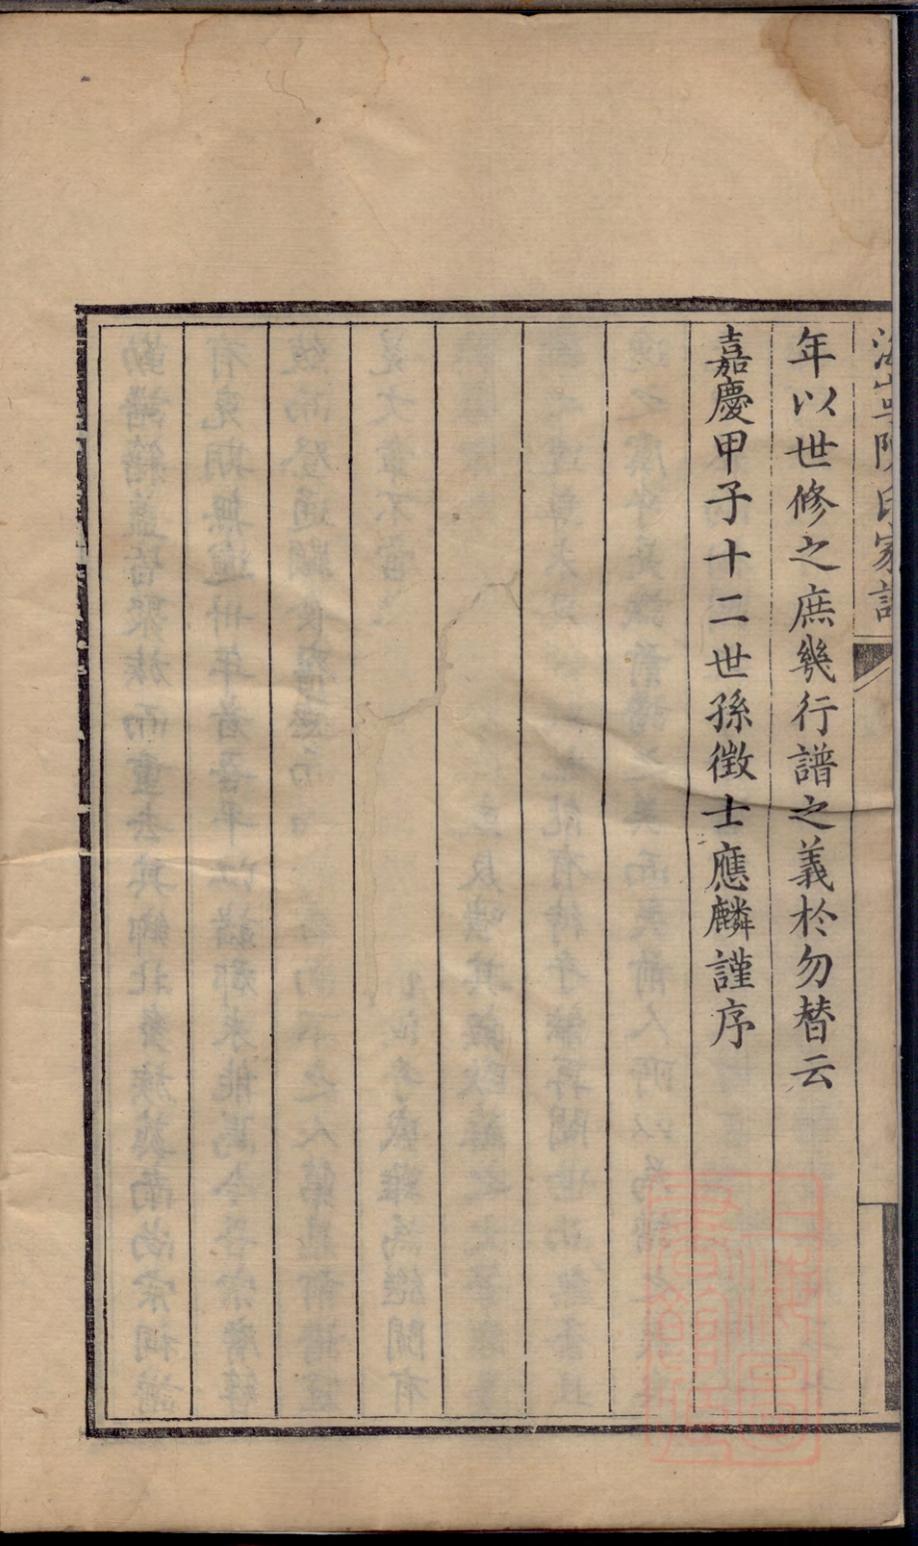 海寧陳氏家譜
年以世修之庶幾行譜之義於勿替云
嘉慶甲子十二世孫徵士應麟謹序